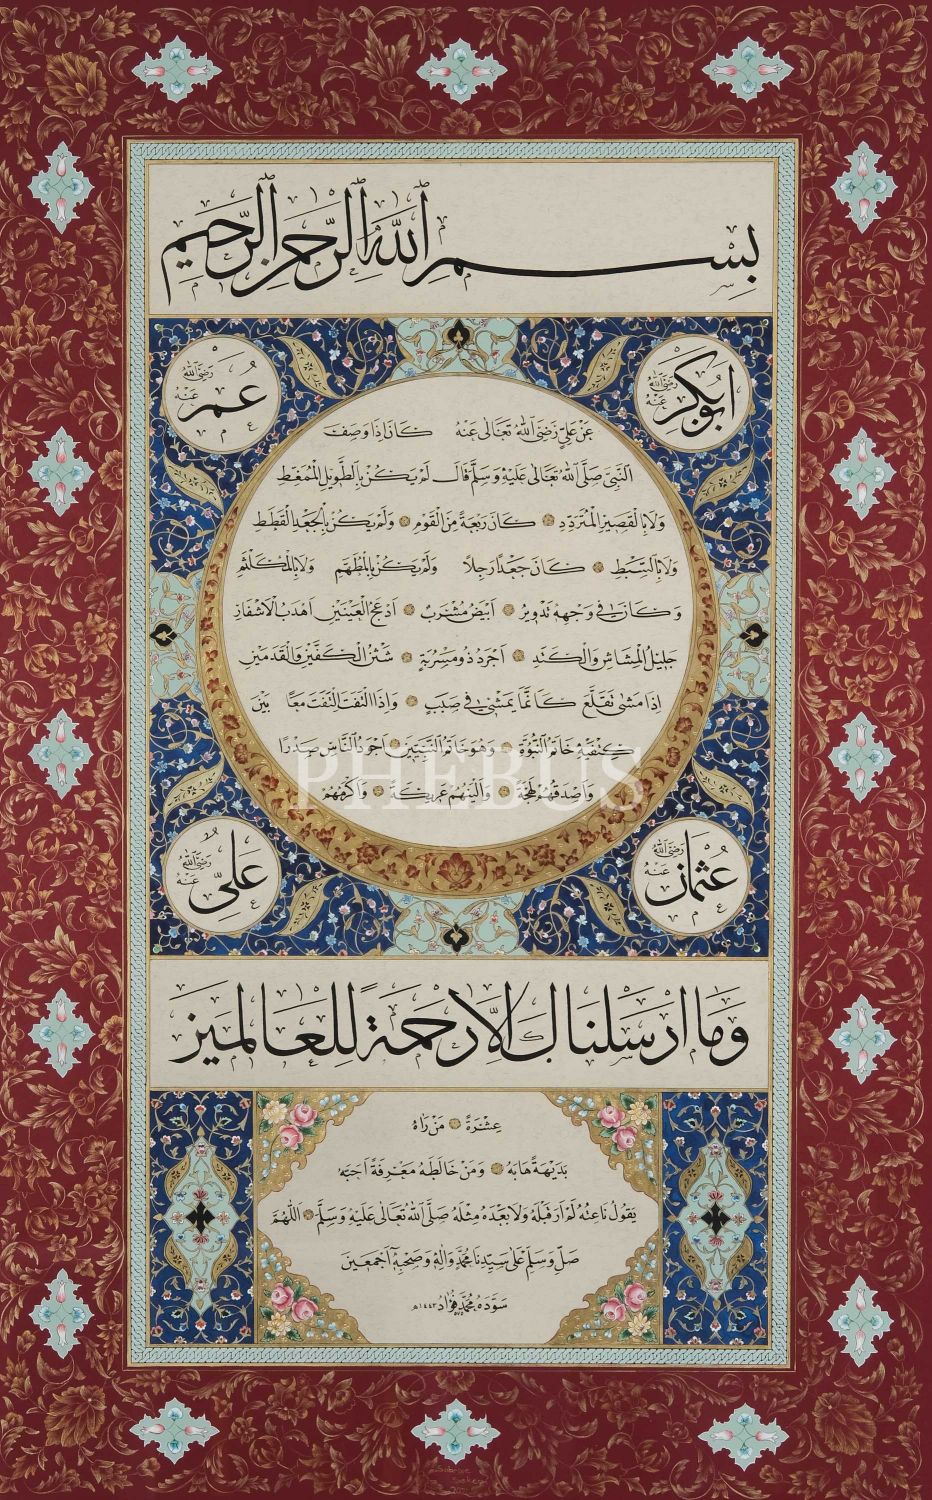 بِسْمِ اللّٰهِ الرَّحْمٰنِ الرَّحِيمِ
ابُوبَكْر رَضِيَ اللّٰهُ عَنْهُ
عُمَر رَضِيَ اللّٰهُ عَنْهُ
عَنْ عَلِيٍّ رَضِيَ اللّٰهُ تَعَالٰى عَنْهُ كَانَ اِذَا وَصَفَ
النَّبِيَّ صَلَّى اللّٰهُ تَعَالٰى عَلَيْهِ وَسَلَّمَ قَالَ لَمْ يَكُنْ بِالطَّوِيلِ الْمُمَغَّطِ
وَلَا بِالْقَصِيرِ الْمُتَرَدِّدِ كَانَ رَبْعَةً مِنَ الْقَوْمِ وَلَمْ يَكُنْ بِالْجَعْدِ الْقَطَطِ
وَلَا بِالسَّبْطِ كَانَ جَعْدًا رَجِلًا وَلَمْ يَكُنْ بِالْمُطَهَّمِ وَلَا بِالْمُكَلْثَمِ
وَكَانَ فِي وَجْهِهِ تَدْوِيرٌ اَبْيَضُ مُشْرَبٌ اَدْعَجُ الْعَيْنَيْنِ اَهْدَبُ الْاَشْفَارِ
جَلِيلُ الْمُشَاشِ وَالْكَتَدِ اَجْرَدُ ذُو مَسْرُبَةٍ شَثْنُ الْكَفَّيْنِ وَالْقَدَمَيْنِ
اِذَا مَشٰى تَقَلَّعَ كَاَنَّمَا يَمْشِي فِي صَبَبٍ وَاِذَا الْتَفَتَ الْتَفَتَ مَعًا بَيْنَ
كَتِفَيْهِ خَاتَمُ النُّبُوَّةِ وَهُوَ خَاتَمُ النَّبِيِّينَ اَجْوَدُ النَّاسِ صَدْرًا
وَاَصْدَقُهُمْ لَهْجَةً وَاَلْيَنُهُمْ عَرِيكَةً وَاَكْرَمُهُمْ
PHEBUS
عُثْمَان رَضِيَ اللّٰهُ عَنْهُ
عَلِيّ رَضِيَ اللّٰهُ عَنْهُ
وَمَا اَرْسَلْنَاكَ اِلَّا رَحْمَةً لِلْعَالَمِينَ
عِشْرَةً مَنْ رَاٰهُ
بَدِيهَةً هَابَهُ وَمَنْ خَالَطَهُ مَعْرِفَةً اَحَبَّهُ
يَقُولُ نَاعِتُهُ لَمْ اَرَ قَبْلَهُ وَلَا بَعْدَهُ مِثْلَهُ صَلَّى اللّٰهُ تَعَالٰى عَلَيْهِ وَسَلَّمَ اَللّٰهُمَّ
صَلِّ وَسَلِّمْ عَلٰى سَيِّدِنَا مُحَمَّدٍ وَاٰلِهِ وَصَحْبِهِ اَجْمَعِينَ
سَوَّدَهُ مُحَمَّد فُؤَاد ١٤٤٣هـ